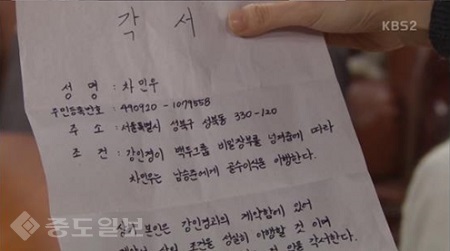 각 서
KBS2
성 명 : 차 민우
주민등록번호 : 490920 - 1079558
주 소 : 서울특별시 성북구 성북동 330-120
조 건 : 강인경이 백두그룹 비밀장부를 넘겨줌에 따라
차민우는 남승준에게 골수이식을 이행한다.
상기 본인은 강인경과의 계약함에 있어
조건을 성실히 이행할 것 이며
각서한다.
중도일보